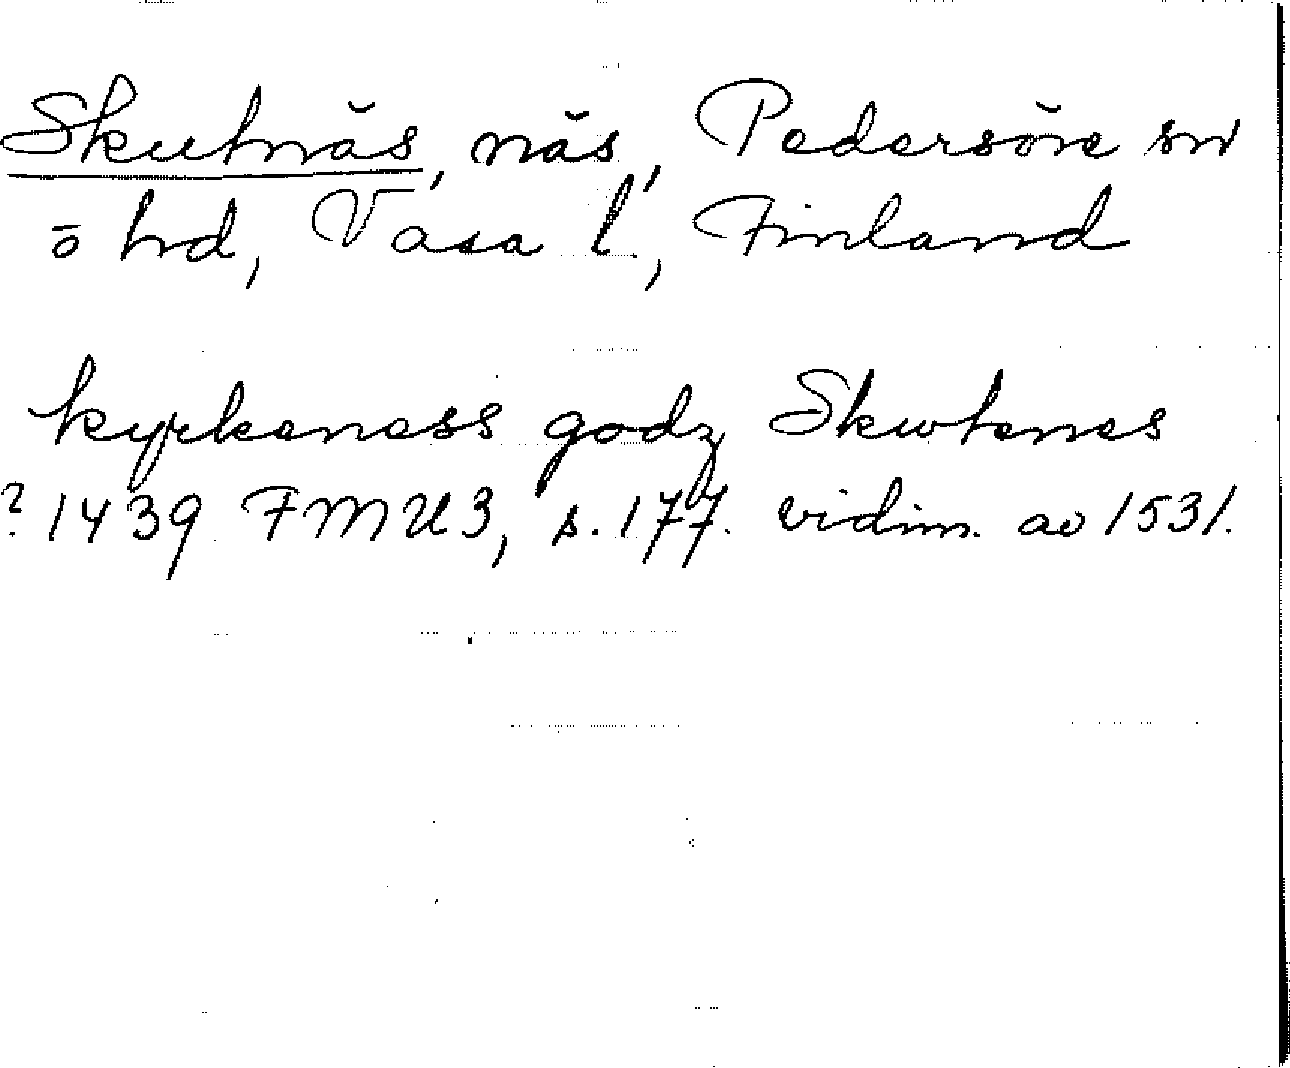 Skutnäs, näs, Pedersöre sn
ö hd, Vasa l., Finland
kyrkeness godz Skwtenes
? 1439 FMU 3, s. 177. vidim. av 1531.